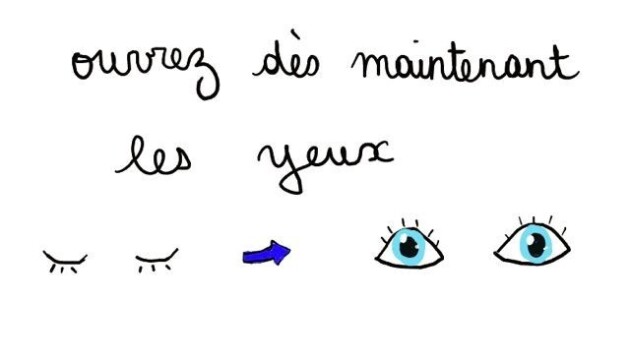 ouvrez dès maintenant
les yeux